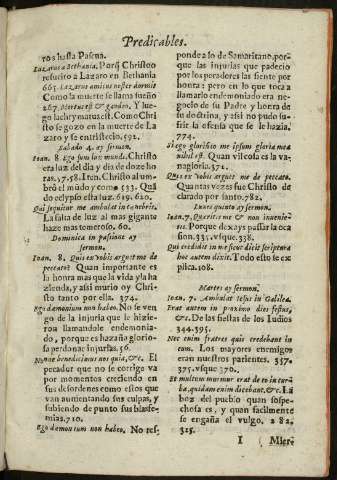 Predicables.
ros hasta Pascua.
Lazarus à Bethania. Porq̃ Christo
resucito a Lazaro en Bethania
665. Lazarus amicus noster dormit
Como la muerte se llama sueño
267. Mortuus est & gaudeo. Y lue-
go lachrymatus est. Como Chri
sto se gozo en la muerte de La
zaro y se entristecio. 592.
Sabado 4. ay sermon.
Ioan. 8 Ego sum lux mundi. Christo
era luz del dia y dia de doze ho
ras. 57.58. Iten. Christo al um-
brò el mũdo y como 533. Quã
do eclypso esta luz. 619. 620.
Qui sequitur me ambulat in tenebris.
La falta de luz al mas gigante
haze mas temeroso. 60.
Dominica in passione ay
sermon.
Ioan. 8. Quis ex vobis arguet me de
peccato? Quan importante es
la honra mas que la vida y la ha
zienda, y assi murio oy Chri-
sto tanto por ella. 374.
Ego dæmonium non habeo. No se ven
go de la injuria que le hizie-
ron llamandole endemonia-
do, porque es hazaña glorio-
sa perdonar injurias. 56.
Nonne benedicimus nos quia, &c. El
pecador que no se corrige va
por momentos creciendo en
sus desordenes como estos que
van aumentando sus culpas, y
subiendo de punto sus blasfe-
mias. 710.
Ego dæmonium non habeo. No res-
ponde a lo de Samaritano, por-
que las injurias que padecio
por los pecadores las siente por
honra: pero en lo que toca a
llamarlo endemoniado era ne-
gocio de su Padre y honra de
su doctrina, y assi no pudo su-
frir la ofensa que se le hazia.
774.
Si ego glorifico me ipsum gloria mea
nihil est. Quan vil cosa es la va-
nagloria. 372.
Quis ex vobis arguet me de peccato.
Quantas vezes fue Christo de
clarado por santo. 782.
Lunes quinto ay sermon.
Ioan. 7. Quæritis me & non invenie-
tis. Porque dexays passar la oca
sion. 335. vsque. 338.
Qui credidit in me sicut dicit scriptura
hoc autem dixit. Todo esto se ex
plica. 108.
Martes ay sermon.
Ioan. 7. Ambulat Iesus in Galilea.
Erat autem in proximo dies festus,
&c. De las fiestas de los Iudios
344. 395.
Nec enim fratres eius credebant in
eum. Los mayores enemigos
eran nuestros parientes. 357.
375. vsque 370.
Et multum murmur erat de eo in turba,
quidam enim dicebant, &c. La
boz del pueblo quan sospe-
chosa es, y quan facilmente
se engaña el vulgo. 282.
325.
I
Mierc